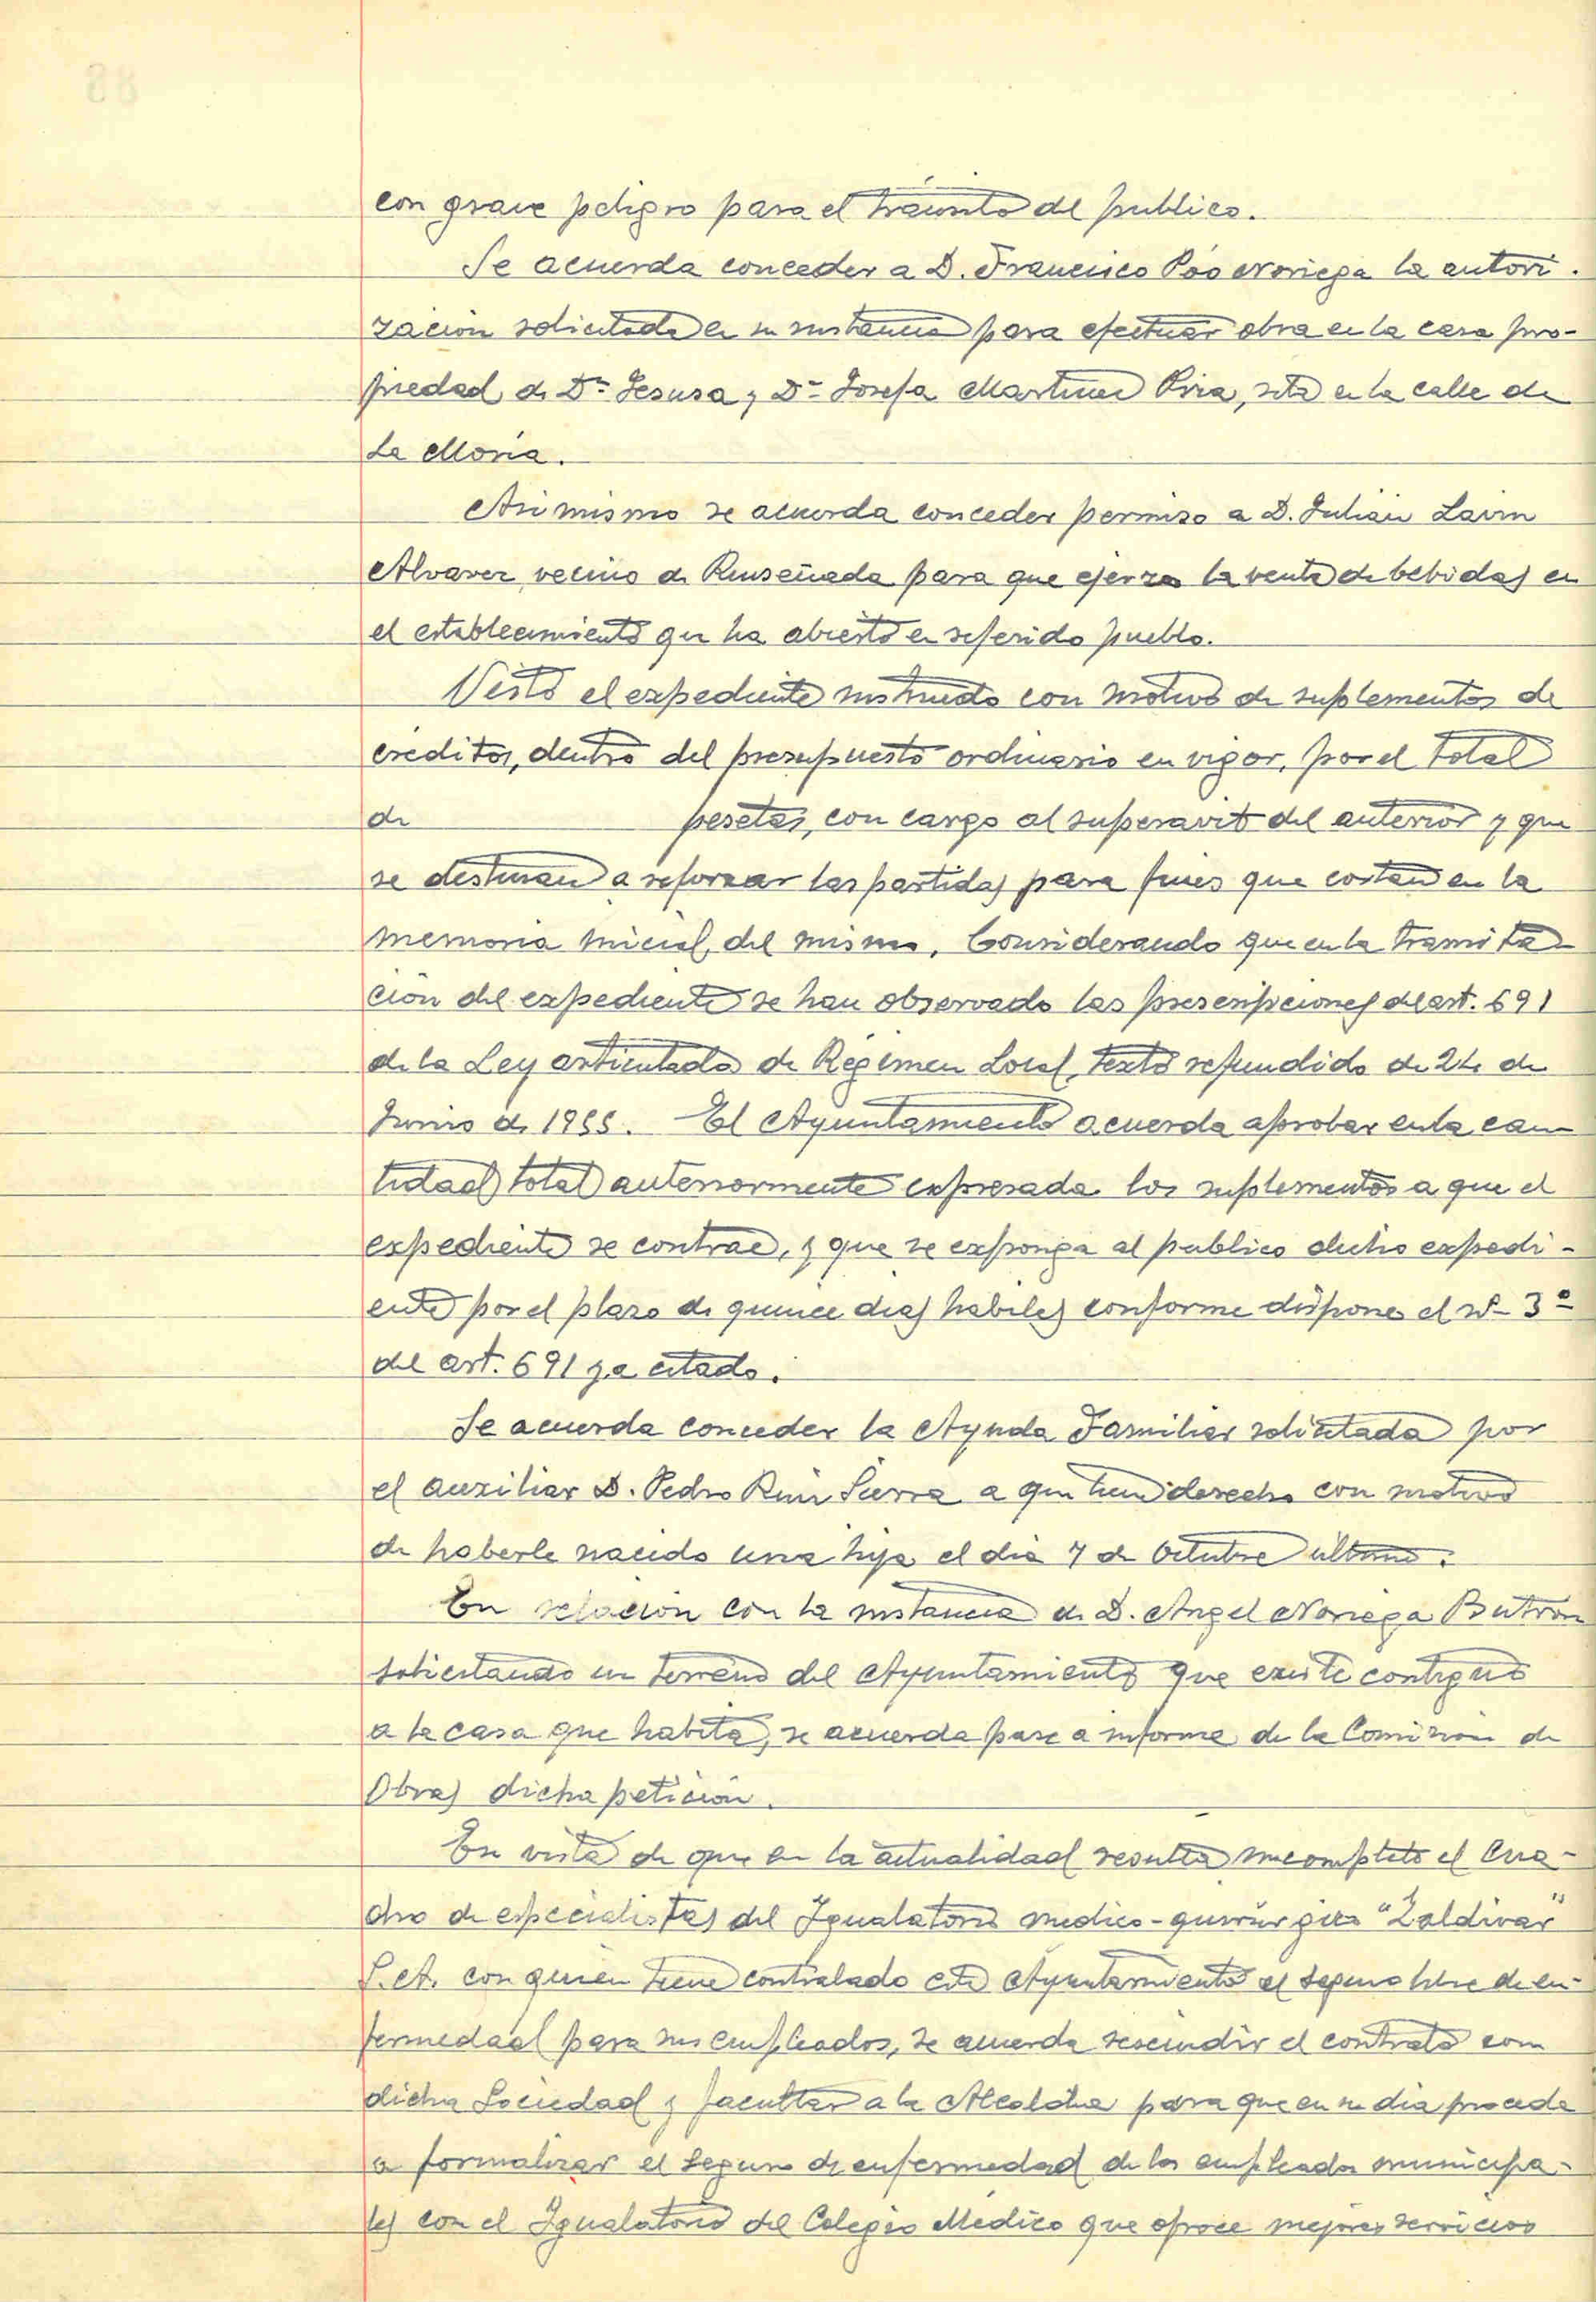 con grave peligro para el tránsito del publico.
Se acuerda conceder a D. Francisco Póo Noriega la autori-
zación solicitada en su instancia para efectuar obra en la casa pro-
piedad de Dª Jesusa y Dª Josefa Martinez Piria, sita en la calle de
La Moria.
Asi mismo se acuerda conceder permiso a D. Julián Lavin
Alvarez, vecino de Ruiseñada para que ejerza la venta de bebidas en
el establecimiento que ha abierto en referido pueblo.
Visto el expediente instruido con motivo de suplementos de
creditos, dentro del presupuesto ordinario en vigor, por el total
de pesetas, con cargo al superavit del anterior y que
se destinan a reforzar las partidas para fines que costan en la
memoria inicial del mismo. Considerando que en la tramita-
ción del expediente se han observado las prescripciones del art. 691
de la Ley articulada de Regimen Local, texto refundido de 24 de
Junio de 1955. El Ayuntamiento acuerda aprobar en la can
tidad total anteriormente expresada los suplementos a que el
expediente se contrae, y que se exponga al publico dicho expedi-
ente por el plazo de quince dias habiles conforme dispone el nº 3º
del art. 691 ya citado.
Se acuerda conceder la Ayuda Familiar solicitada por
el auxiliar D. Pedro Ruiz Sierra a que tiene derecho con motivo
de haberle nacido una hija el dia 7 de Octubre último.
En relación con la instancia de D. Angel Noriega Butrón
solicitando un terreno del Ayuntamiento que existe contiguo
a la casa que habita, se acuerda pase a informe de la Comisión de
Obras dicha petición.
En vista de que en la actualidad resulta incompleto el Cua-
dro de especialistas del Igualatorio medico-quirúrgico "Zaldivar"
S.A. con quien tiene contratado este Ayuntamiento el seguro libre de en-
fermedad para sus empleados, se acuerda rescindir el contrato con
dicha Sociedad y facultar a la Alcaldia para que en su dia proceda
a formalizar el seguro de enfermedad de los empleados municipa-
les con el Igualatorio del Colegio Médico que ofrece mejores servicios